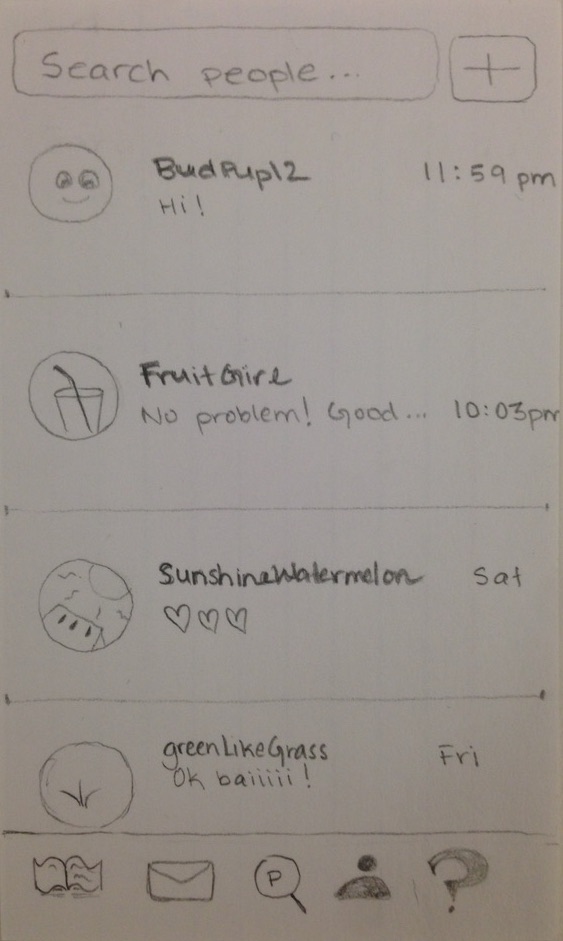 Search people...
BudPup12 11:59 pm
Hi!
FruitGirl
No problem! Good... 10:03pm
SunshineWatermelon Sat
♡♡♡
greenLikeGrass Fri
Ok baiiiiii!
P
?